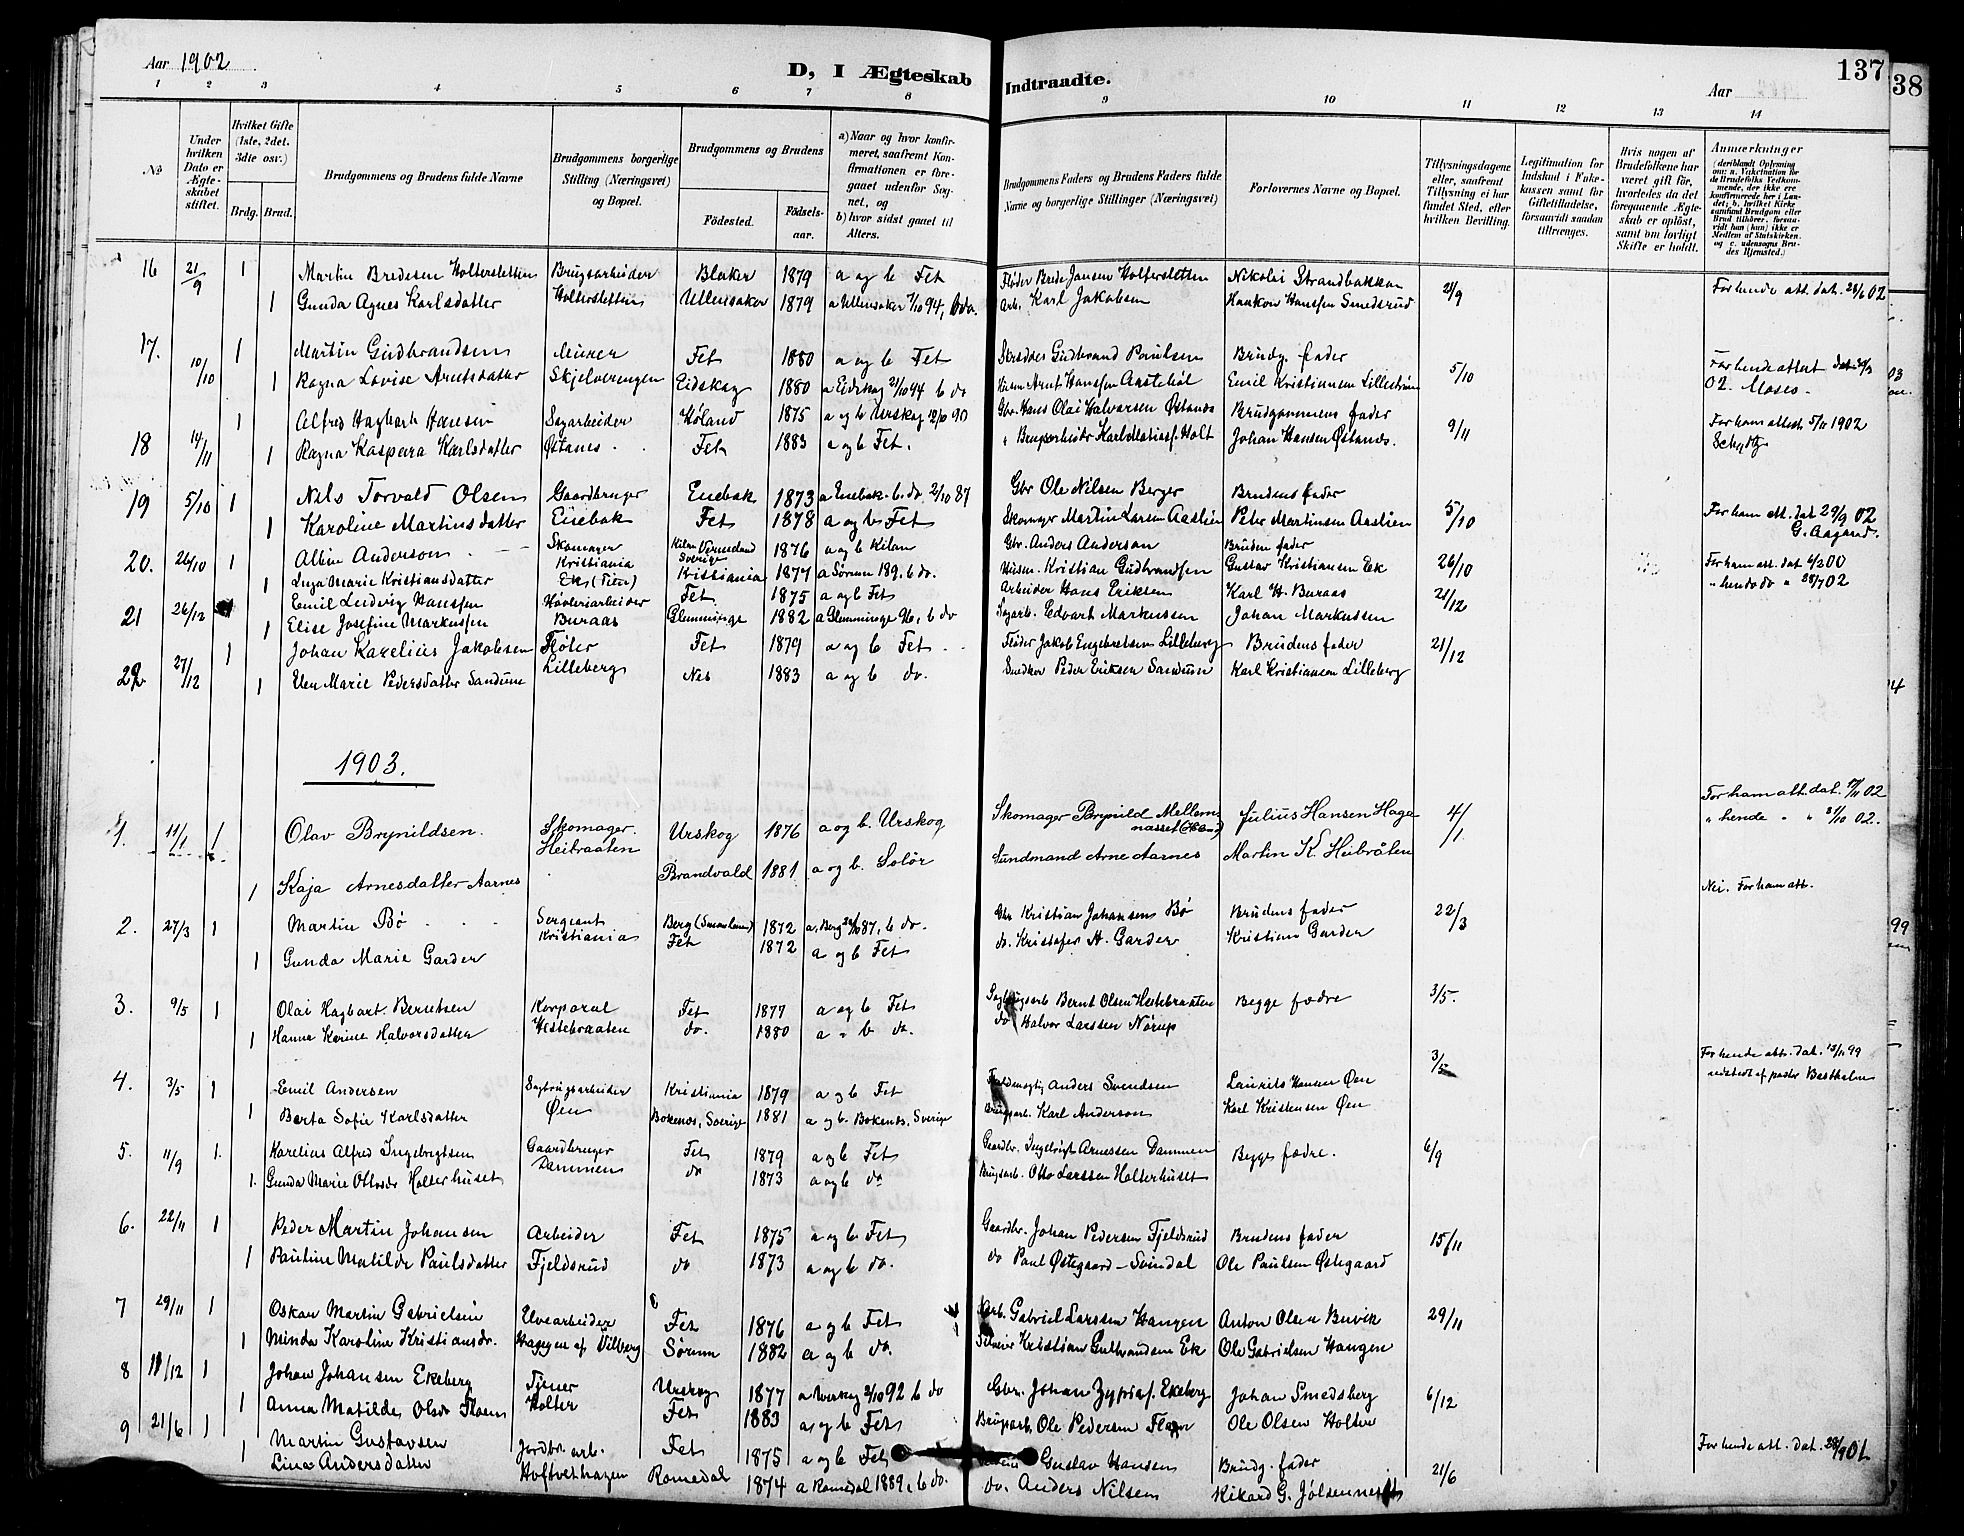 Aar 1902
D, I Ægteskab Indtraadte.
Aar
137
38
1 2 3 4 5 6 7 8 9 10 11 12 13 14
No
Under hvilken Dato er Ægteskabet stiftet.
Hvilket Gifte (1ste, 2det, 3die osv.)
Brdg. Brud.
Brudgommens og Brudens fulde Navne
Brudgommens borgerlige Stilling (Næringsvei) og Bopæl.
Brudgommens og Brudens
Fødested. Fødselsaar.
a) Naar og hvor konfirmeret, saafremt Konfirmationen er foregaaet udenfor Sognet, og
b) hvor sidst gaaet til Alters.
Brudgommens Faders og Brudens Faders fulde Navne og borgerlige Stillinger (Næringsvei)
Forlovernes Navne og Bopæl.
Tillysningsdagene eller, saafremt Tillysning ei har fundet Sted, efter hvilken Bevilling.
Legitimation for Indskud i Enkekassen samt for Giftetilladelse, forsaavidt saadan tiltrænges.
Hvis nogen af Brudefolkene har været gift før, hvorledes da det foregaaende Ægteskab er opløst, samt om lovligt Skifte er holdt.
Anmerkninger (deriblandt Oplysning om: a. Vakcination for de Brudefolks Vedkommende, der ikke ere konfirmerede her i Landet; b. hvilket Kirkesamfund Brudgom eller Brud tilhører, forsaavidt han (hun) ikke er Medlem af Statskirken, og c. udensogns Brudes Hjemsted.)
16 21/9 1 Martin Bredesen Holterslettin Brugsarbeider Blaker 1879 a og b Fet Fløder Brede Jansen Holterstetten Nikolai Strandbakken 21/9 For hende att. dat. 28/6 02
1 Gunda Agnes Karlsdatter Holterslettin Ullensaker 1879 a Ullensaker 7/10 94, b do. Arb. Karl Jakobsen Haakon Hansen Smedsrud
17. 10/10 1 Martin Gudbrandsen Murer Fet 1880 a og b Fet Skrædder Gudbrand Paulsen Brudg. fader 5/10 For hende attest
1 Ragna Lovise Arntsdatter Skjelverengen Eidskog 1880 a Eidskog 21/10 94 b do Arnt Hansen Emil Kristiansen Lillestrøm 02. Moses.
18 14/11 1 Alfred Hagbart Hansen Sagarbeider Høland 1875 a og b Urskog 12/10 90 Gbr. Hans Olai Halvorsen Østands Brudgommens fader 9/11 For ham attest 5/11 1902
1 Ragna Kaspara Karlsdatter Østanes Fet 1883 a og b Fet. Brugsarbeider Karl Johan Hansen Østands. Schydtz
19 5/10 1 Nils Torvald Olsen Gaardbruger Enebak 1873 a Enebak b. do. 2/10 87 Gbr Ole Nilsen Berger Brudens fader 5/10 For ham att. dat 29/9 02
1 Karoline Martinsdatter Enebak Fet 1878 a og b Fet Skomager Martin Larsen Aaslien Peter Martinsen Aaslien G. Aagaard.
20. 26/10 1 Albin Anderson Skomager Kristiania Kilan Vermeland Sverige 1876 a og b Kilan Gbr. Anders Anderson Brudens fader 26/10 For ham att. dat 6/2 00
1 Marie Kristiansdatter Ek, (Fien) Kristiania 1877 a Sørum 189. b do. Kristian Gudbrandsen Gustav Kristiansen Ek " hende do " 28/7 02
21 26/12 Emil Ludvig Hansen Høvleriarbeider Fet 1875 a og b Fet Arbeider Hans Eriksen Karl H. Buraas 21/12
1 Elise Josefine Markussen Buraas Glemminge 1882 a Glemminge 96, b do Sagarb. Edvart Markussen Johan Markussen
22 27/12 1 Johan Karelius Jakobsen Fløter Fet 1879 a og b Fet Fløder Jakob Engebretsen Lilleberg Brudens fader 21/12
1 Elen Marie Pedersdatter Sandum Lilleberg Nes 1883 a og b do. Snedker Peder Eriksen Sandum Karl Kristiansen Lilleberg
1903.
1. 11/1 1 Olav Brynildsen. Skomager. Urskog 1876 a og b. Urskog Skomager Brynild Mellem Julius Hansen Haga 4/1 For ham att. dat. 17/11 02
Heibraaten " hende " " 31/10 02.
1 Kaja Arnesdatter Aarnes Brandvald 1881 a og b. Solør Sundmand Arne Aarnes Martin K. Heibråten
2. 27/3 1 Martin Bø Sergeant Berg (Smaalenene) 1872 a, Berg 87, b do. Gbr Kristian Johansen Bø Brudens fader 22/3 Nei. For ham att.
1 Gunda Marie Garder Kristiania Fet 1872 a og b Fet do. Kristofer H. Garder Kristian Garder
3. 9/5 1 Olai Hagbart Berntsen Korporal Fet 1877 a og b Fet Bernt Olsen Hestebraaten Begge fædre 3/5.
1 Hanna Karine Halvorsdatter Hestebraaten do. 1880 a " b do. do Halvor Larssen Nørup
4. 3/5 1 Emil Andersen Sagbrugsarbeider Kristiania 1879 a og b Fet Anders Svendsen Laurits Hansen Øen 3/5 For hende att. dat. 13/11 99
1 Berta Sofie Karlsdatter Øen Bokenes, Sverige 1881 a og b. Bokenes, Sverige Brugsarb. Karl Anderson Karl Kristensen Øen udstedt af pastor
5. 11/9 1. Karelius Alfred Ingebrigtsen Gaardbruger Fet 1879 a og b Fet Gaardbr. Ingebrigt Arnessen Dammen Begges fædre. 6/9
1. Gunda Marie Ottosdr Holterhuset Dammen do 1873 a og b do Brugsarb. Otto Larssen Holterhuset
6. 22/11 1 Peder Martin Johansen Arbeider Fet 1875 a og b Fet Gaardbr. Johan Pedersen Fjeldsrud Brudens fader 15/11
1 Pauline Matilde Paulsdatter Fjeldsrud do 1873 a og b do. do Paul Østegaard - Svindal Ole Paulsen Østegaard
7 29/11 1 Oskar Martin Gabrielsen Elvearbeider Fet 1876 a og b Fet Gabriel Larssen Hangen Anton Olsen Buvik 29/11
1 Minda Karoline Kristiansdr. Haugen af Vilberg Sørum 1882 a og b do. Kristian Gulbrandsen Ek Ole Gabrielsen Hangen
8 11/12 1 Johan Johansen Ekeberg Tjener Urskog 1877 a Urskog 2/10 92 b do Gbr. Johan Ekeberg Johan Smedsberg 6/12
1 Anna Matilde Olsdr Floen Holter Fet 1883 a og b Fet Brugsarb. Ole Pedersen Ole Olsen Holter
9 21/6 1 Martin Gustavsen Jordbr. arb. Fet 1875 a og b Fet Gustav Hansen Brudg. fader 21/6 For hende att. dat. 28/9 01
1 Lina Andersdatter Hoftvethagen Romedal 1874 a Romedal 1889, b do. do. Anders Nilsen Rikard G. Jølsennes